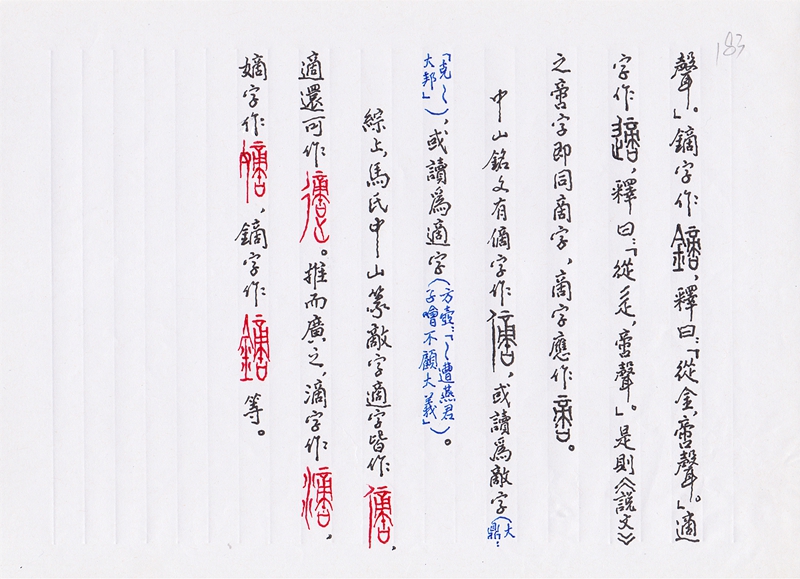 183
聲」。鏑字作，釋曰：「從金，啻聲。」適
字作，釋曰：「從辵，啻聲」。是則《說文》
之啻字即同啇字，啇字應作。
中山銘文有字作，或讀爲敵字（大鼎：
「克～大邦」），或讀爲適字（方壺：「～遭燕君子噲不顧大義」）。
綜上，馬氏中山篆敵字適字皆作，
適還可作。推而廣之，滴字作，
嫡字作，鏑字作等。